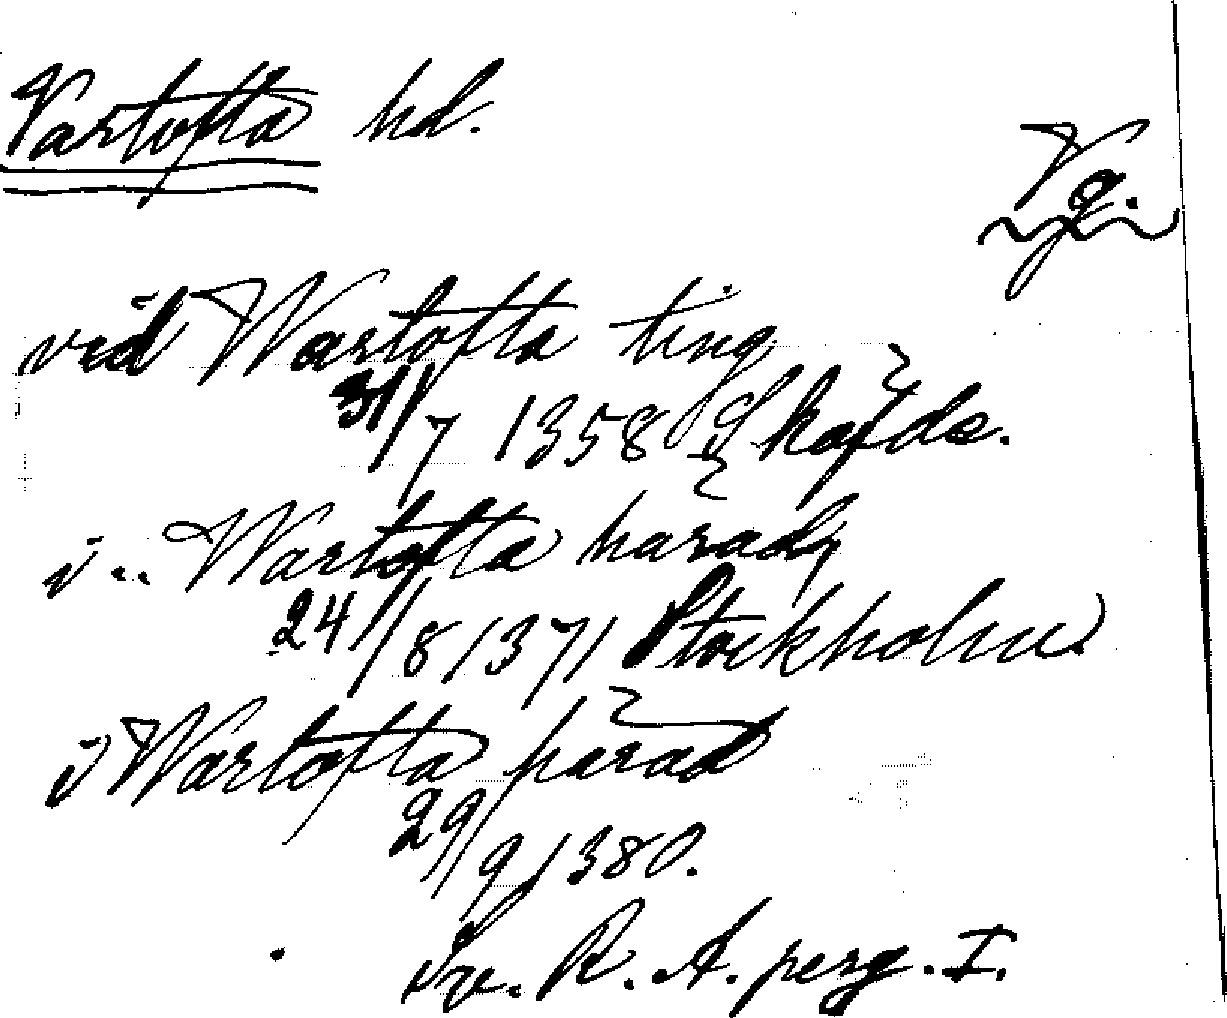 Vartofta hd.
Vg.
vid Wartofta ting
31/7 1358 Skøfde.
i .. Wartofta harad
24/8 1371 Stockholm
i Wartofta harad
29/9 1380.
Sv. R. A. perg. I.